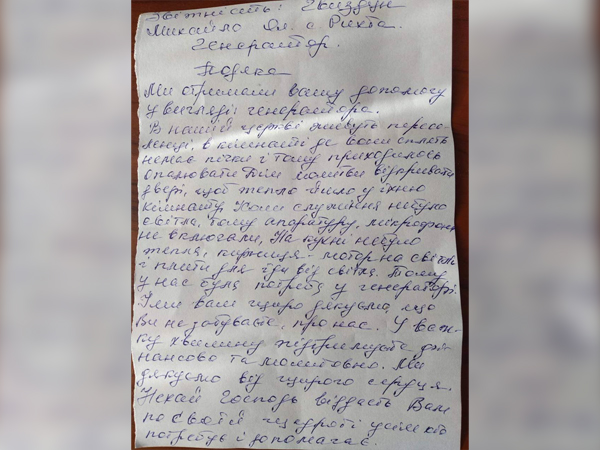 Звітність: Гвиздун
Михайло Ол. с. Рихта.
Генератор.
Подяка
Ми отримали вашу допомогу
у вигляді генератора.
В нашій церкві живуть пересе-
ленці, в кімнаті де вони сплять
немає пічки і тому приходилось
опалювати Дім молитви відкривати
двері, щоб тепло йшло у їхню
кімнату. Коли служіння небуло
світла, тому апаратуру, мікрофони
не включали. На кухні небуло
тепла, криниця - мотор на світлі
і плити для їди від світла. Тому
у нас була потреба у генераторі.
І ми вам щиро дякуємо, що
Ви не забуваєте, про нас. У важ-
ку хвилину підтримуєте фі-
нансово та молитовно. Ми
дякуємо від щирого серця.
Нехай Господь віддасть Вам
по своїй щедроті усім хто
потребує і допомагає.